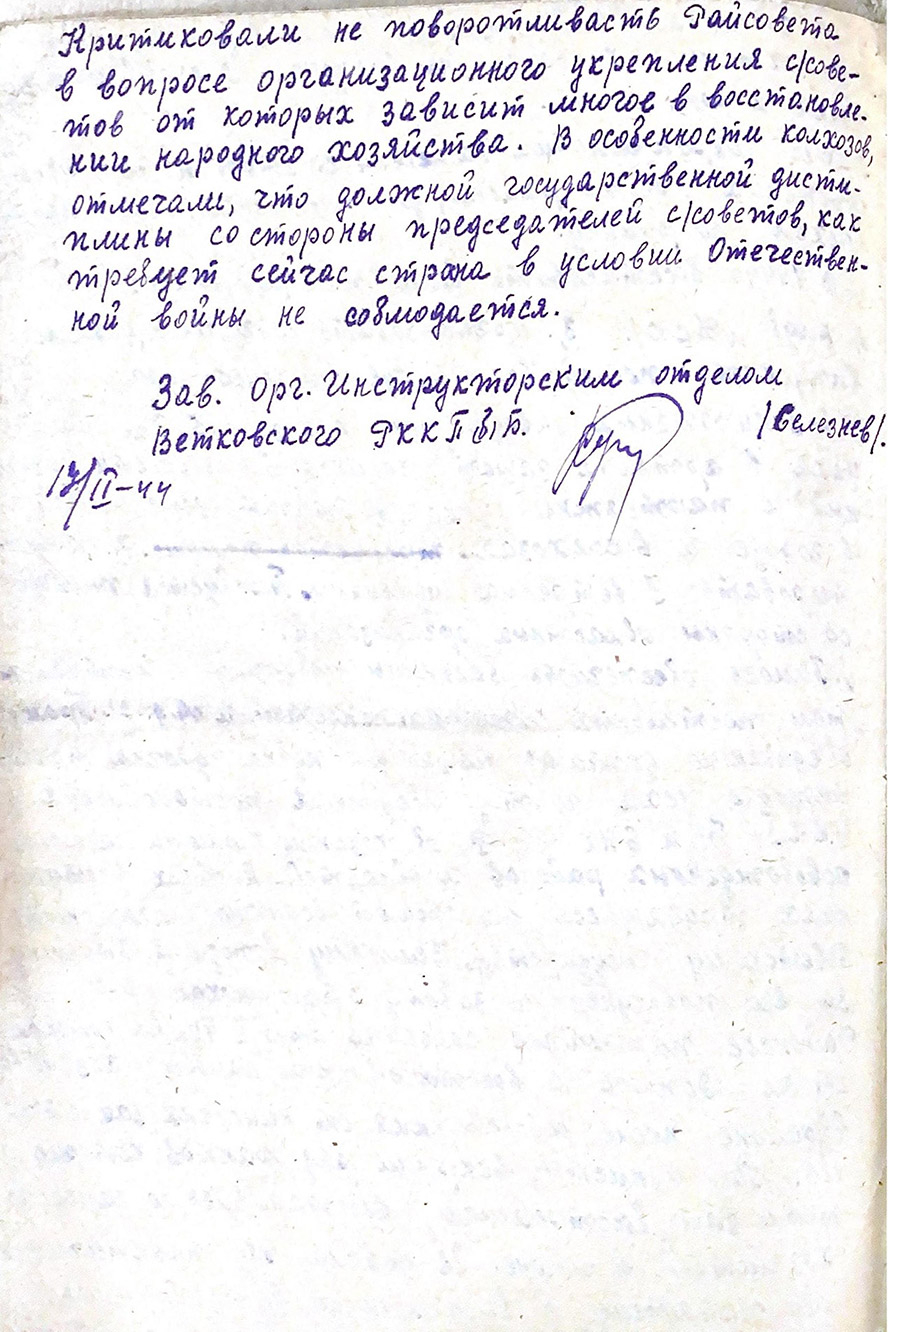 Критиковали не поворотливасть Райсовета
в вопросе организационного укрепления с/сове-
тов от которых зависит многое в восстановле-
нии народного хозяйства. В особенности колхозов,
отмечали, что должной государственной дисти-
плины со стороны председателей с/советов, как
требует сейчас страна в условии Отечествен-
ной войны не соблюдается.
Зав. Орг. Инструкторским отделом
Ветковского РККП(б)Б. /Селезнев/.
17/II-44